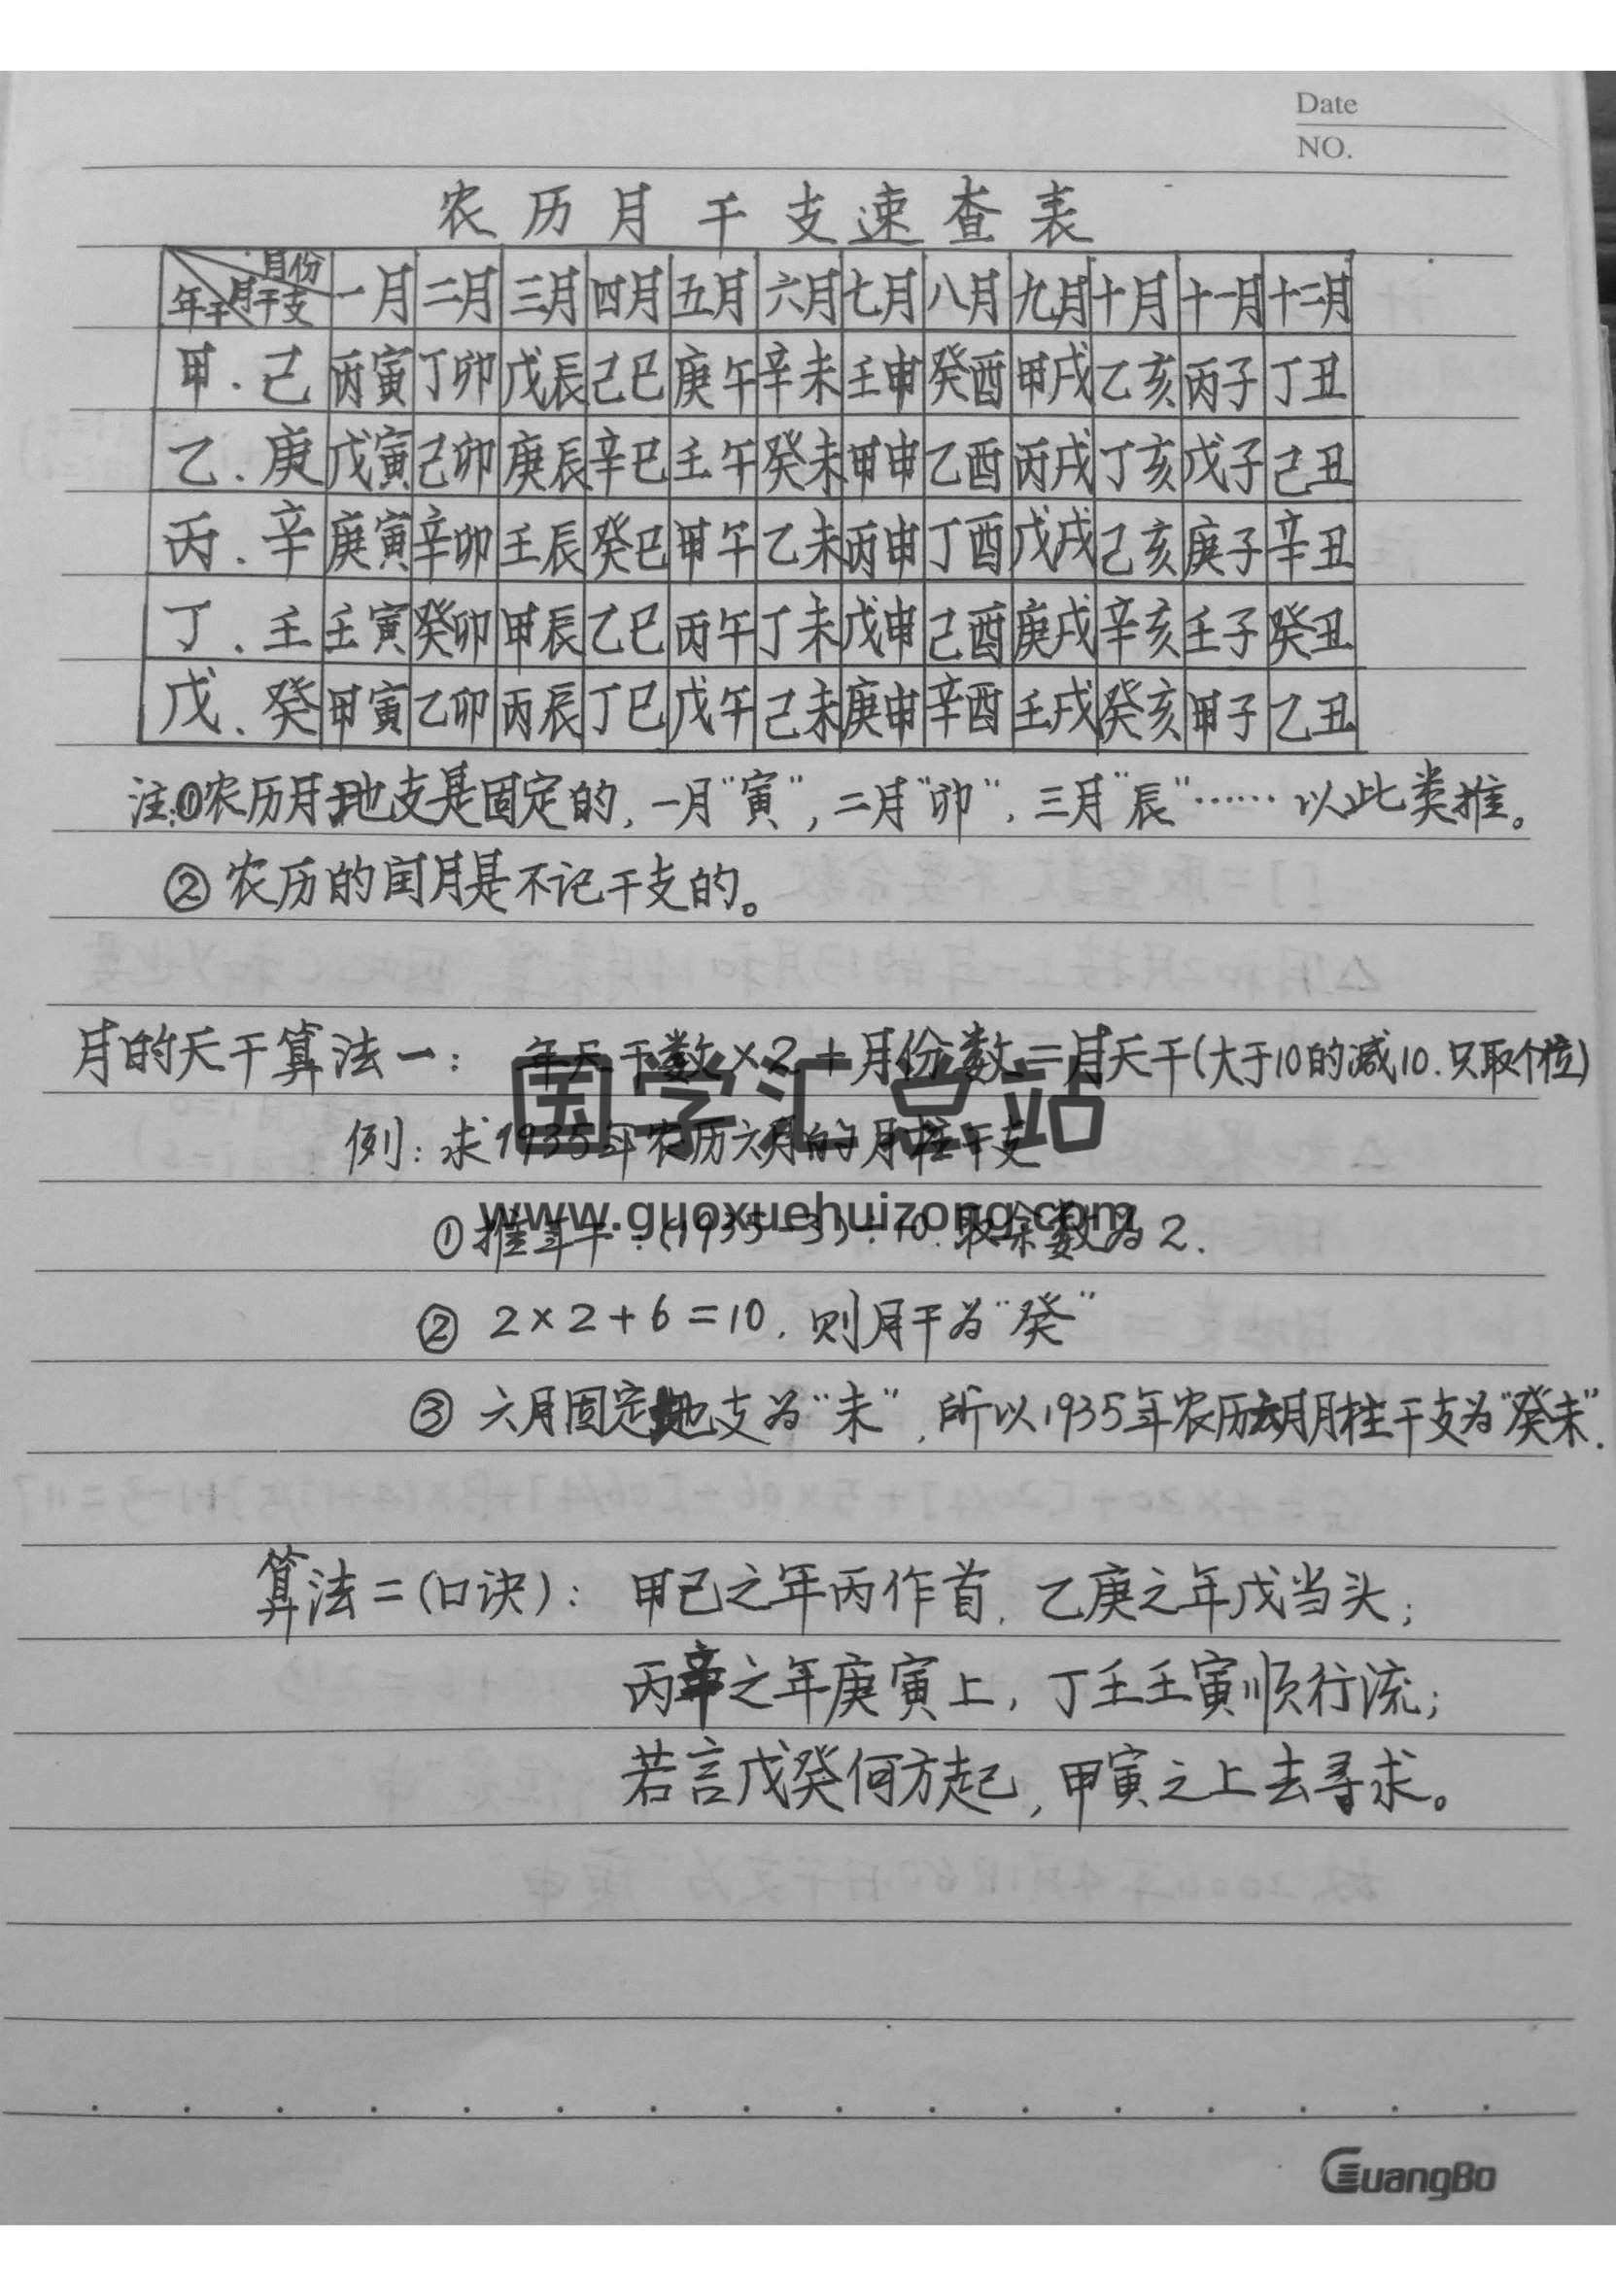 Date
NO.
农历月干支速查表
月份
月干支
年干
一月 二月 三月 四月 五月 六月 七月 八月 九月 十月 十一月 十二月
甲.己 丙寅 丁卯 戊辰 己巳 庚午 辛未 壬申 癸酉 甲戌 乙亥 丙子 丁丑
乙.庚 戊寅 己卯 庚辰 辛巳 壬午 癸未 甲申 乙酉 丙戌 丁亥 戊子 己丑
丙.辛 庚寅 辛卯 壬辰 癸巳 甲午 乙未 丙申 丁酉 戊戌 己亥 庚子 辛丑
丁.壬 壬寅 癸卯 甲辰 乙巳 丙午 丁未 戊申 己酉 庚戌 辛亥 壬子 癸丑
戊.癸 甲寅 乙卯 丙辰 丁巳 戊午 己未 庚申 辛酉 壬戌 癸亥 甲子 乙丑
注:①农历月地支是固定的,一月"寅",二月"卯",三月"辰"……以此类推。
②农历的闰月是不记干支的。
月的天干算法一: 年天干数×2+月份数=月天干(大于10的减10.只取个位)
国学汇总站
例:求1935年农历六月的月柱干支
www.guoxuehuizong.com
①推年干:(1935-3)÷10.取余数为2.
②2×2+6=10.则月干为"癸"
③六月固定地支为"未",所以1935年农历六月月柱干支为"癸未".
算法二(口诀): 甲己之年丙作首,乙庚之年戊当头;
丙辛之年庚寅上,丁壬壬寅顺行流;
若言戊癸何方起,甲寅之上去寻求。
GuangBo